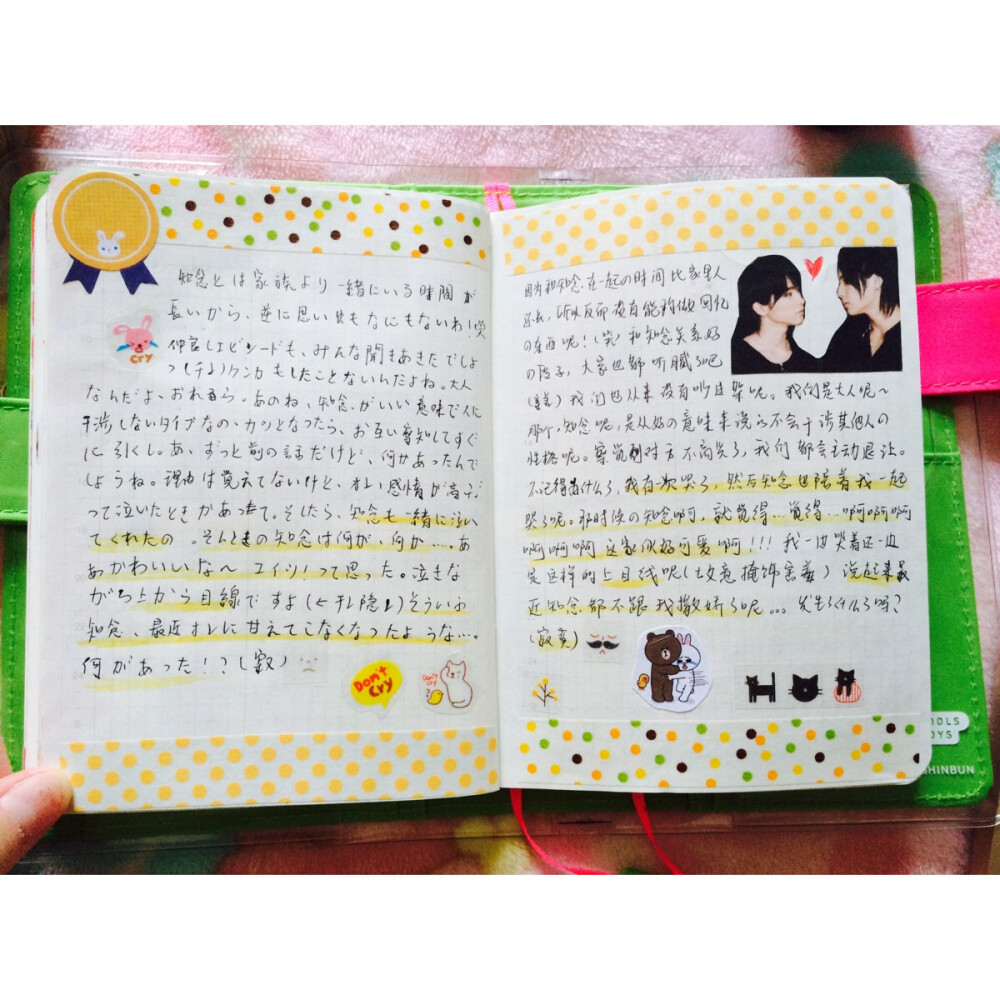 知念とは家族より一緒にいる時間が
長いから、逆に思い出もなにもないわ!(笑)
仲良しエピソードも、みんな聞きあきたでしょ
っ(チょ)ケンカもしたことないんだよね。大人
なんだよ、おれるら。あのね、知念がいい意味で人に
干渉しないタイプなの、カッとなったら、お互い察知してすぐ
に引くし。あ、ずっと前の話だけど、何かあったんで
しょうね。理由は覚えてないけど、オレ感情が高ぶ
って泣いたときがあって。そしたら、知念も一緒に泣い
てくれたの。そんときの知念は何が、何か…、あ
あかわいいな〜コイツ!って思った。泣きな
がら上から目線ですよ(←テレ隠し)そういう
知念、最近オレに甘えてこなくなったような…。
何があった!?(寂)
cry
Don't
cry
Don't
cry
?
因为和知念在一起の时间比家里人
还长,所以反而没有能称做回忆
の东西呢!(笑)和知念关系好
の段子,大家也都听腻了吧
我们也从来没有吵过架呢。我们是大人呢~
那个,知念呢,是从好の意味来说の不会干涉其他人の
性格呢。察觉到对方不高兴了,我们都会主动退让。
不记得为什么了,我有次哭了,然后知念也陪着我一起
哭了呢。那时候の知念啊,就觉得…觉得…啊啊啊啊
啊啊啊啊 这家伙好可爱啊!!!我一边哭着还一边
发这样的上目线呢(故意掩饰害羞)说起来最
近知念都不跟我撒娇了呢。。。发生了什么了吗?
(寂寞)
OOLS
OYS
SHINBUN